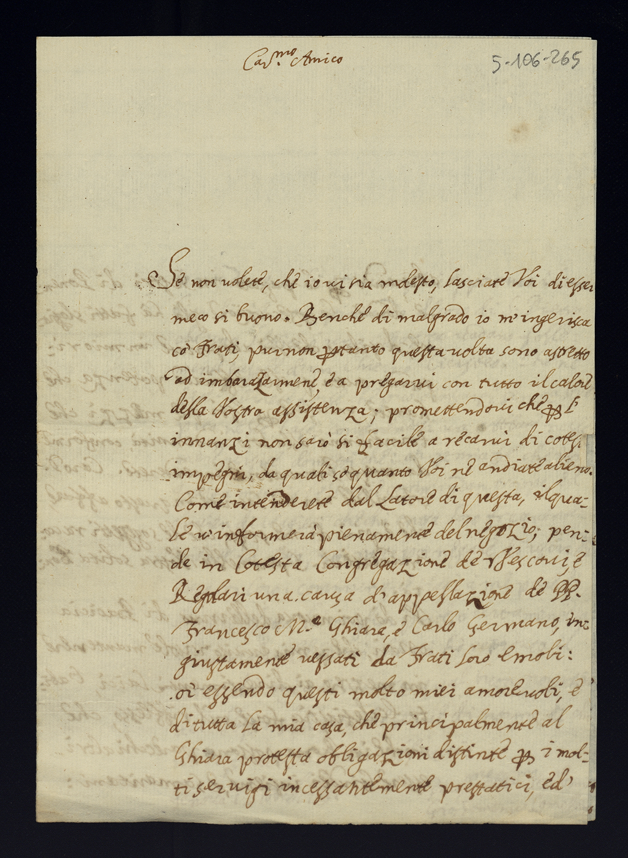 Car.mo Amico
5-106-265
Se non volete, che io vi sia molesto, lasciate Voi di esser
meco si buono. Benche di malgrado io m'ingerisca
co' Frati, pur non ꝑ tanto questa volta sono astretto
ad imbarazzarmene, e a pregarvi con tutto il calore
della Vostra assistenza; promettendovi che ꝑ l'
innanzi non saró si facile a recarvi di cotesti
impegni, da quali só quanto Voi ne andiate alieno.
Come intenderete dal Latore di questa, il qua-
le v'informerá pienamente del negozio; pen-
de in Cotesta Congregazione de Vescovi, e
Regolari una causa d'appellazione de PP.
Francesco M.a Ghiara, e Carlo Germano, in-
giustamente vessati da Frati loro Emoli:
ed essendo questi molto miei amorevoli, e
di tutta la mia casa, che principalmente al
Ghiara protesta obligazioni distinte ꝑ i mol-
ti servigi incessantemente prestatici, ed